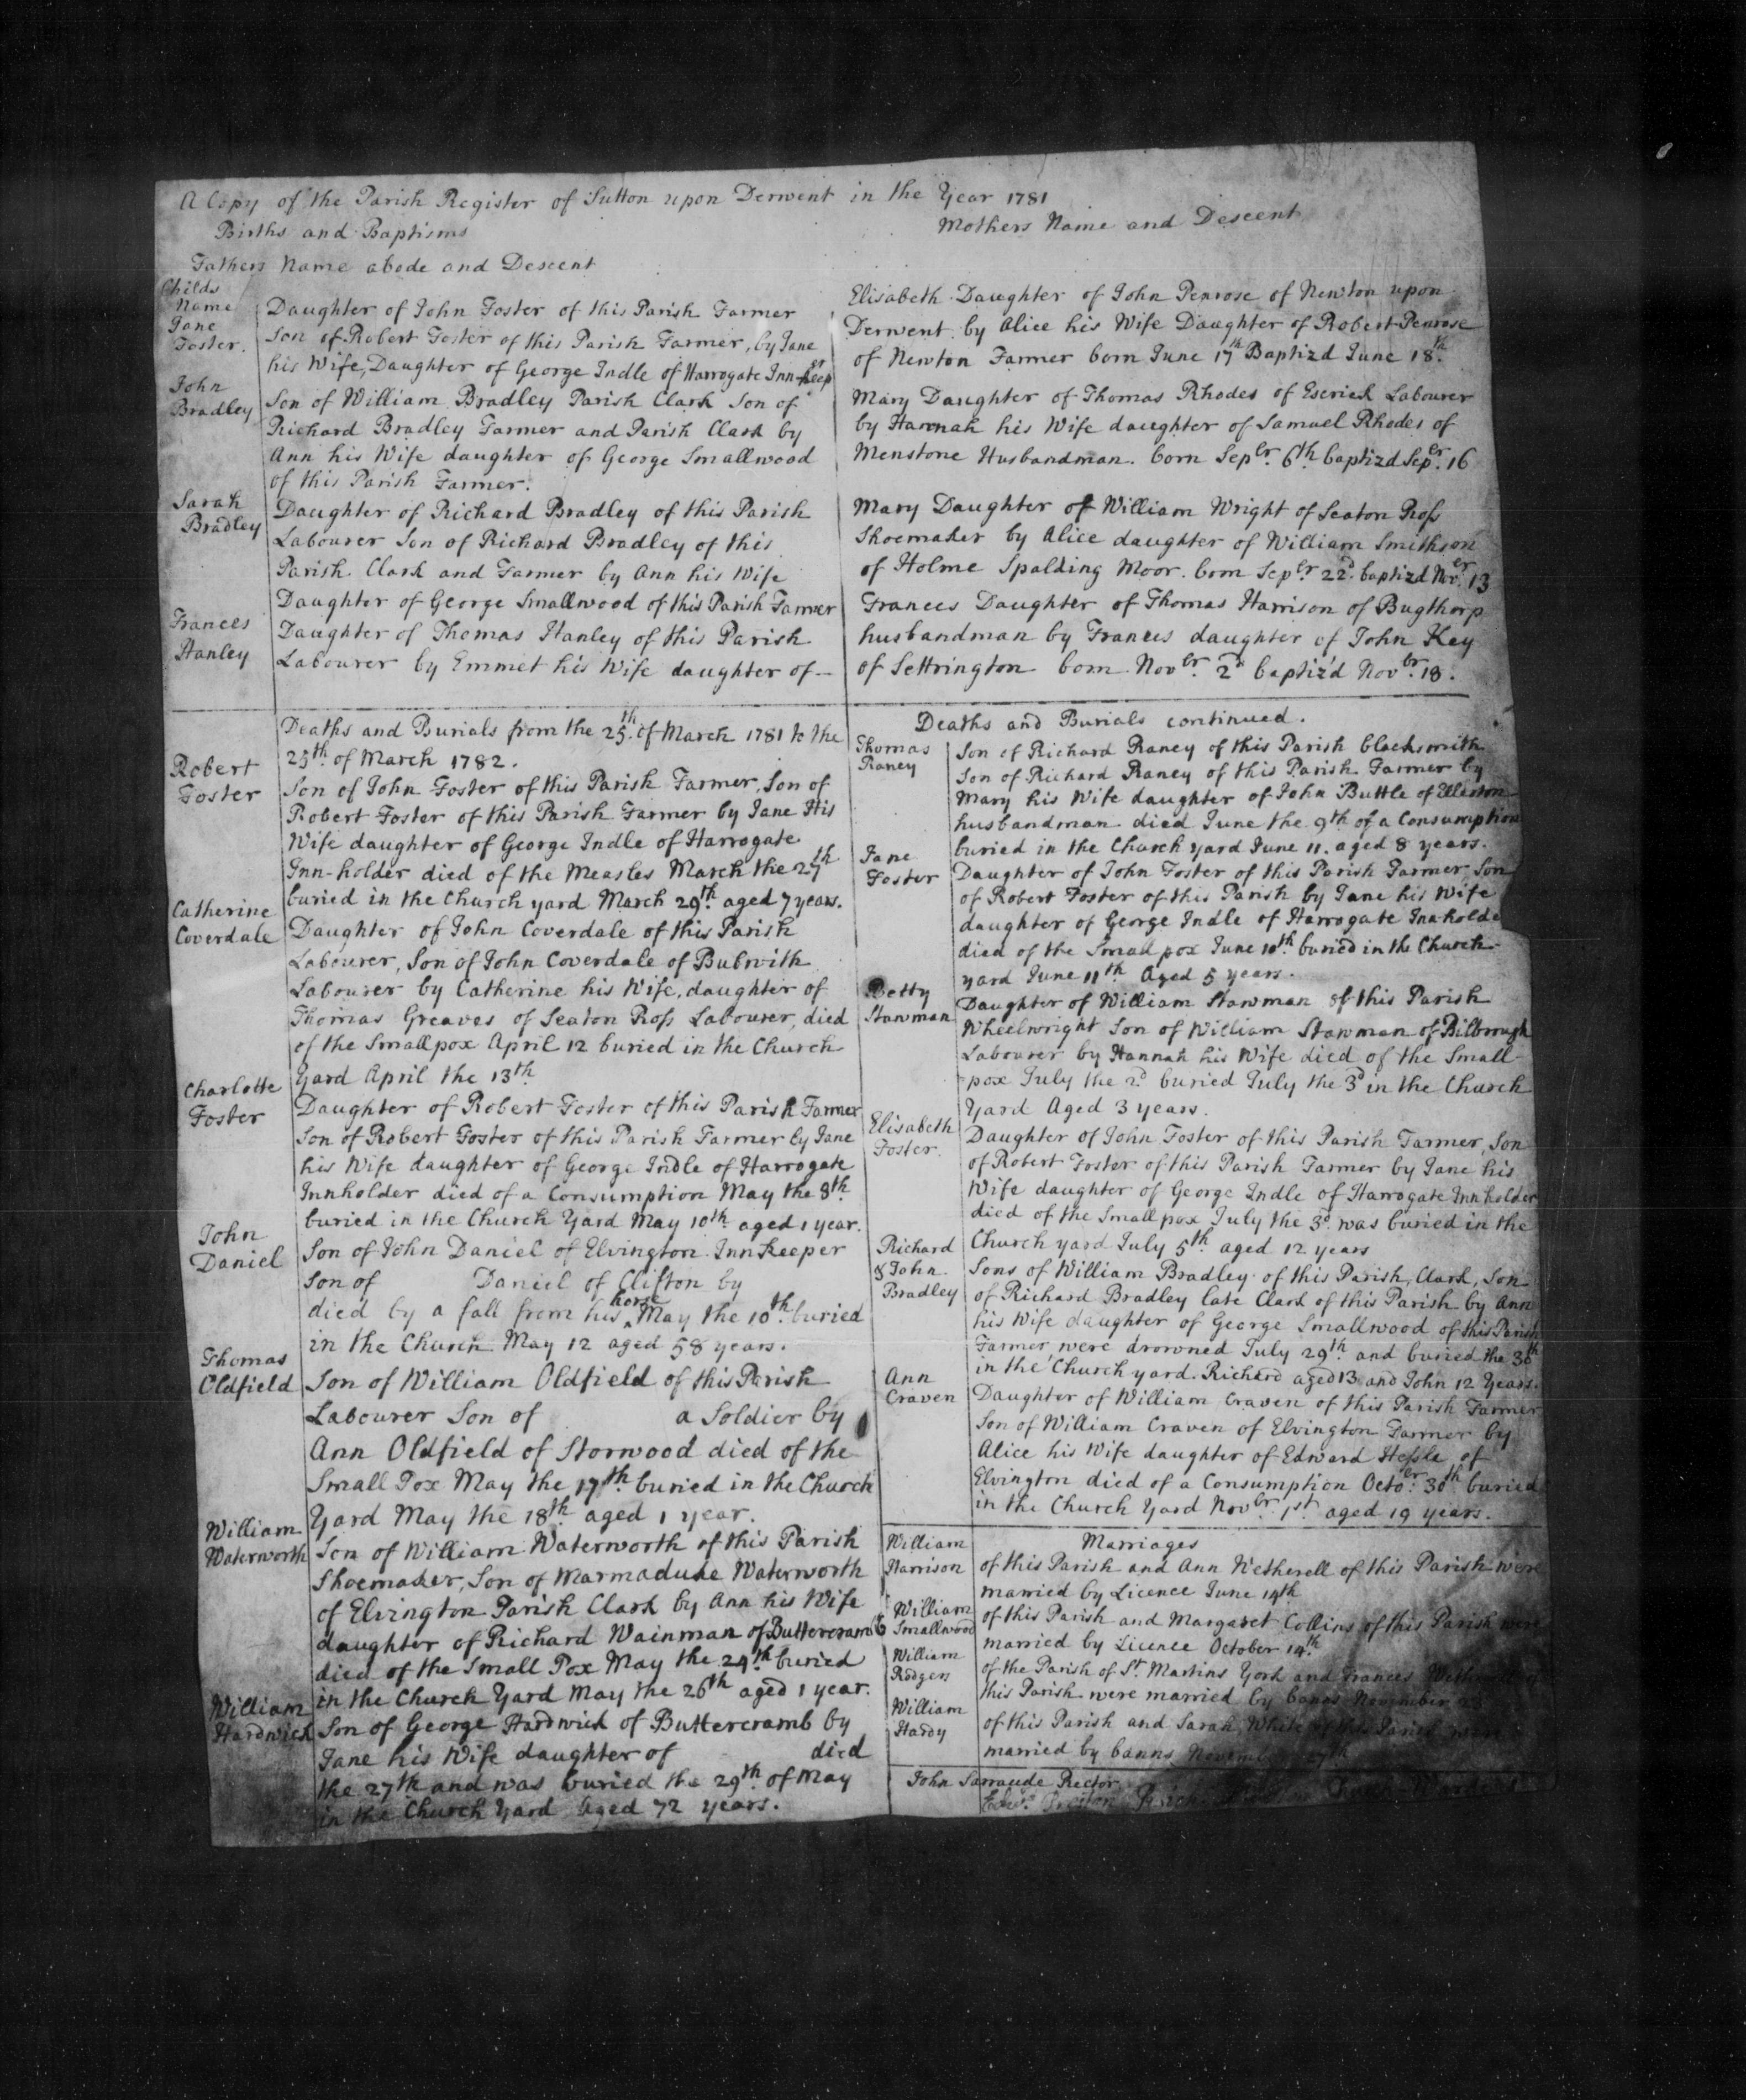 A Copy of the Parish Register of Sutton upon Derwent in the Year 1781
Births and Baptisms
Fathers Name abode and Descent
Mothers Name and Descent
Childs
Name
Jane
Foster.
Daughter of John Foster of this Parish Farmer
Son of Robert Foster of this Parish Farmer, by Jane
his Wife, Daughter of George Indle of Harrogate Inn-keeper
Elisabeth Daughter of John Penrose of Newton upon
Derwent by Alice his Wife Daughter of Robert Penrose
of Newton Farmer born June 17th Baptizd June 18th
John
Bradley
Son of William Bradley Parish Clark Son of
Richard Bradley Farmer and Parish Clark by
Ann his Wife daughter of George Smallwood
of this Parish Farmer.
Mary Daughter of Thomas Rhodes of Escrick Labourer
by Hannah his Wife daughter of Samuel Rhodes of
Menstone Husbandman. born Sepbr. 6th baptizd Sepbr. 16
Sarah
Bradley
Daughter of Richard Bradley of this Parish
Labourer Son of Richard Bradley of this
Parish Clark and Farmer by Ann his Wife
Daughter of George Smallwood of this Parish Farmer
Mary Daughter of William Wright of Seaton Ross
Shoemaker by Alice daughter of William Smithson
of Holme Spalding Moor. born Sepbr. 22d. baptizd Novbr. 13
Frances
Hanley
Daughter of Thomas Hanley of this Parish
Labourer by Emmet his Wife daughter of —
Frances Daughter of Thomas Harrison of Bugthorp
husbandman by Frances daughter of John Key
of Settrington born Novbr. 2d baptiz'd Novbr. 18.
Deaths and Burials from the 25th. of March 1781 to the
25th. of March 1782.
Robert
Foster
Son of John Foster of this Parish Farmer, Son of
Robert Foster of this Parish Farmer by Jane His
Wife daughter of George Indle of Harrogate
Inn-holder died of the Measles March the 27th
buried in the Church yard March 29th. aged 7 years.
Catherine
Coverdale
Daughter of John Coverdale of this Parish
Labourer, Son of John Coverdale of Bubwith
Labourer by Catherine his Wife, daughter of
Thomas Greaves of Seaton Ross Labourer, died
of the Smallpox April 12 buried in the Church
Yard April the 13th.
Charlotte
Foster
Daughter of Robert Foster of this Parish Farmer
Son of Robert Foster of this Parish Farmer by Jane
his Wife daughter of George Indle of Harrogate
Innholder died of a Consumption May the 8th.
buried in the Church Yard May 10th. aged 1 year.
John
Daniel
Son of John Daniel of Elvington Innkeeper
Son of Daniel of Clifton by
died by a fall from his horse May the 10th. buried
in the Church May 12 aged 58 years.
Thomas
Oldfield
Son of William Oldfield of this Parish
Labourer Son of a Soldier by
Ann Oldfield of Storwood died of the
Small Pox May the 17th. buried in the Church
Yard May the 18th. aged 1 year.
William
Waterworth
Son of William Waterworth of this Parish
Shoemaker, Son of Marmaduke Waterworth
of Elvington Parish Clark by Ann his Wife
daughter of Richard Wainman of Buttercramb
died of the Small Pox May the 24th. buried
in the Church Yard May the 26th aged 1 year.
William
Hardwick
Son of George Hardwick of Buttercramb by
Jane his Wife daughter of died
the 27th and was buried the 29th. of May
in the Church Yard Aged 72 years.
Deaths and Burials continued.
Thomas
Raney
Son of Richard Raney of this Parish blacksmith
Son of Richard Raney of this Parish Farmer by
Mary his Wife daughter of John Buttle of
husbandman died June the 9th of a Consumption
buried in the Church yard June 11. aged 8 years.
Jane
Foster
Daughter of John Foster of this Parish Farmer Son
of Robert Foster of this Parish by Jane his Wife
daughter of George Indle of Harrogate Innholde
died of the Small pox June 10th. buried in the Church
yard June 11th Aged 5 years.
Betty
Stawman
Daughter of William Stawman of this Parish
Wheelwright Son of William Stawman of Bilbrough
Labourer by Hannah his Wife died of the Small-
pox July the 2d buried July the 3d in the Church
Yard Aged 3 years.
Elisabeth
Foster.
Daughter of John Foster of this Parish Farmer, Son
of Robert Foster of this Parish Farmer by Jane his
Wife daughter of George Indle of Harrogate Innholder
died of the Small pox July the 3d. was buried in the
Church yard July 5th. aged 12 years
Richard
& John
Bradley
Sons of William Bradley of this Parish, Clark, Son
of Richard Bradley late Clark of this Parish by Ann
his Wife daughter of George Smallwood of this Parish
Farmer were drowned July 29th and buried the 30th
in the Church yard. Richard aged 13 and John 12 Years.
Ann
Craven
Daughter of William Craven of this Parish Farmer
Son of William Craven of Elvington Farmer by
Alice his Wife daughter of Edward Hessle of
Elvington died of a Consumption Octobr. 30th. buried
in the Church Yard Novbr. 1st. aged 19 years.
Marriages
William
Harrison
of this Parish and Ann Wetherell of this Parish were
married by Licence June 14th
William
Smallwood
of this Parish and Margaret Collins of this Parish were
married by Licence October 14th.
William
Rodgers
of the Parish of St. Martins York and Frances
this Parish were married by banns November
William
Hardy
of this Parish and Sarah White of this Parish were
married by banns November 27th
John Sarraude Rector